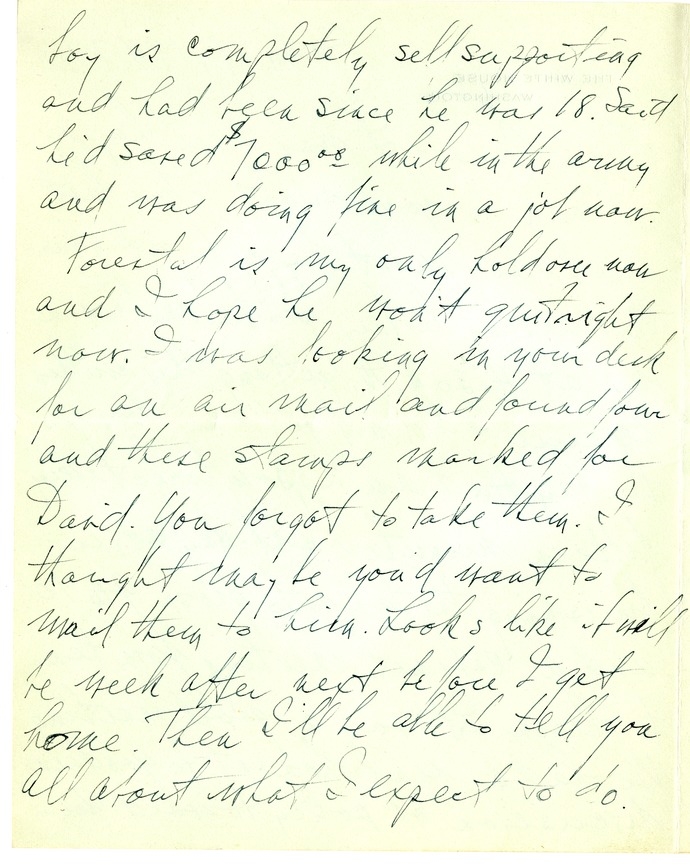 boy is completely self supporting
and had been since he was 18. Said
he'd saved $7000 00 while in the army
and was doing fine in a job now.
Forestal is my only holdover now
and I hope he won't quit right
now. I was looking in your desk
for an air mail and found four
and these stamps marked for
David. You forgot to take them. I
thought maybe you'd want to
mail them to him. Looks like it will
be week after next before I get
home. Then I'll be able to tell you
all about what I expect to do.
THE WHITE HOUSE
WASHINGTON